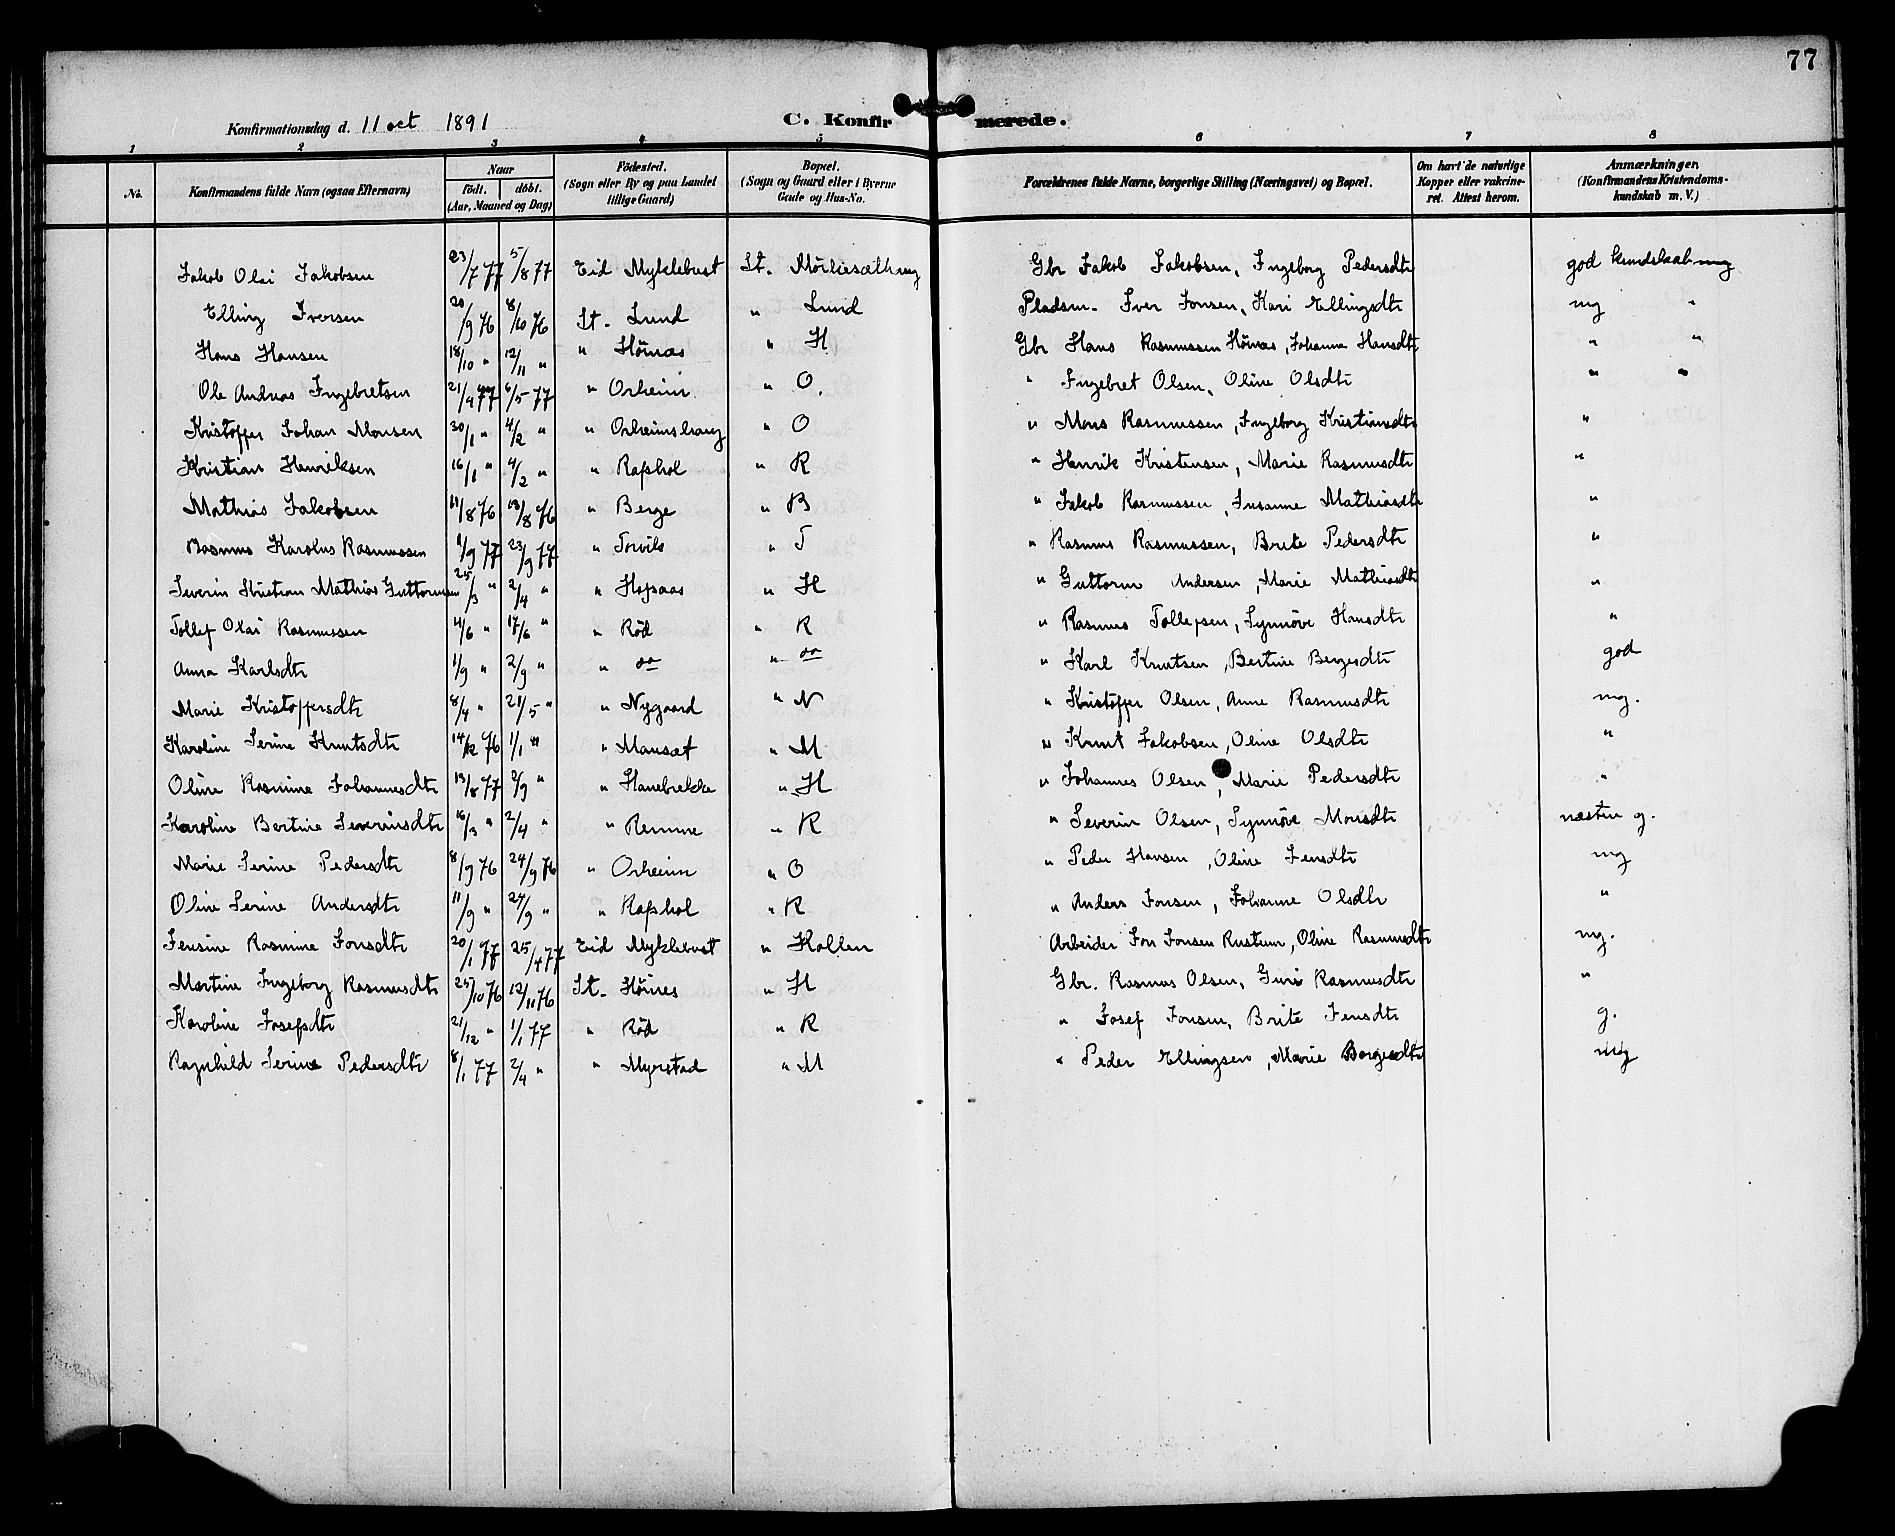 77
Konfirmationsdag d. 11 oct 1891 C. Konfirmerede.
1 2 3 4 5 6 7 8
No. Konfirmandens fulde Navn (ogsaa Efternavn) Naar født. døbt. (Aar, Maaned og Dag) Fødested. (Sogn eller By og paa Landet tillige Gaard) Bopæl. (Sogn og Gaard eller i Byerne Gade og Hus-No. Forældrenes fulde Navne, borgerlige Stilling (Næringsvei) og Bopæl. Om havt de naturlige Kopper eller vakcineret. Attest herom. Anmærkninger. (Konfirmandens Kristendomskundskab m. V.)
Jakob Olai Jakobsen 23/7 77 5/8 77 Eid Myklebust St. Gbr Jakob Jakobsen, Ingeborg Pedersdtr god kundskab mg
Elling Iversen 20/9 76 8/10 76 St. Lund " Lund Pladsm. Iver Jonsen, Kari Ellingsdtr mg "
Hans Hansen 18/10 " 12/11 " " Hörnæs " H Gbr Hans Rasmussen Hörnæs, Johanne Hansdtr " "
Ole Andreas Ingebretsen 21/4 77 6/5 77 " Orheim " O. " Ingebret Olsen, Oline Olsdtr " "
Kristoffer Johan Monsen 20/1 " 4/2 " " Orheimshaug " O " Mons Rasmussen, Ingeborg Kristiansdtr "
Kristian Henriksen 16/1 " 4/2 " " Rafshol " R " Henrik Kristensen, Marie Rasmusdtr "
Mathias Jakobsen 11/8 76 13/8 76 " Berge " B " Jakob Rasmussen, Susanne Mathiasdtr "
Rasmus Karolus Rasmussen 1/9 77 23/9 77 " Torvik " T " Rasmus Rasmussen, Brite Pedersdtr "
Severin Kristian Mathias Guttormsen 25/3 " 2/4 " " Hopsaas " H " Guttorm Andersen, Marie Mathiasdtr "
Tollef Olai Rasmussen 4/6 " 17/6 " " Röd " R " Rasmus Tollefsen, Synnöve Hansdtr "
Anna Karlsdtr 1/9 " 2/9 " " do " do " Karl Knutsen, Bertine Bergesdtr god
Marie Kristoffersdtr 8/4 " 21/5 " " Nygaard " N " Kristoffer Olsen, Anne Rasmusdtr mg.
Karoline Serine Knutsdtr 14/12 76 1/1 " " Maurset " M " Knut Jakobsen, Oline Olsdtr "
Oline Rasmine Johannesdtr 13/8 77 2/9 " " Hanebrekke " H " Johannes Olsen, Marie Pedersdtr "
Karoline Bertine Severinsdtr 16/3 " 2/4 " " Remme " R " Severin Olsen, Synnöve Monsdtr næsten g.
Marie Serine Pedersdtr 8/9 76 24/9 76 " Orheim " O " Peder Hansen, Oline Jensdtr mg
Oline Serine Andersdtr 11/9 " 24/9 " " Rafshol " R " Anders Jonsen, Johanne Olsdtr "
Jensine Rasmine Jonsdtr 20/1 77 25/4 77 Eid Myklebust " Kollen Arbeider Jon Jonsen Rustum, Oline Rasmusdtr mg.
Martine Ingeborg Rasmusdtr 25/10 76 12/11 76 St. Hörnes " H Gbr. Rasmus Olsen, Guri Rasmusdtr "
Karoline Josefsdtr 21/12 " 1/1 77 " Röd " R " Josef Jonsen, Brite Jensdtr g.
Ragnhild Serine Pedersdtr 8/1 77 2/4 " " Myrstad " M " Peder Ellingsen, Marie Borgesdtr mg